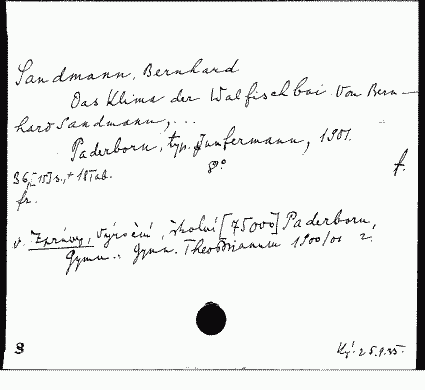 Sandmann, Bernhard
Das Klima der Walfischbai. Von Bern-
hard Sandmann, ...
Paderborn, typ. Junfermann, 1901.
36, [15] s., + 18 Tab. 8°
fr. f.
v. Zprávy, výroční, školní [75000] Paderborn,
Gymn.. Gymn. Theodorianum 1900/01 2.
8 Ký. 25.9.35.